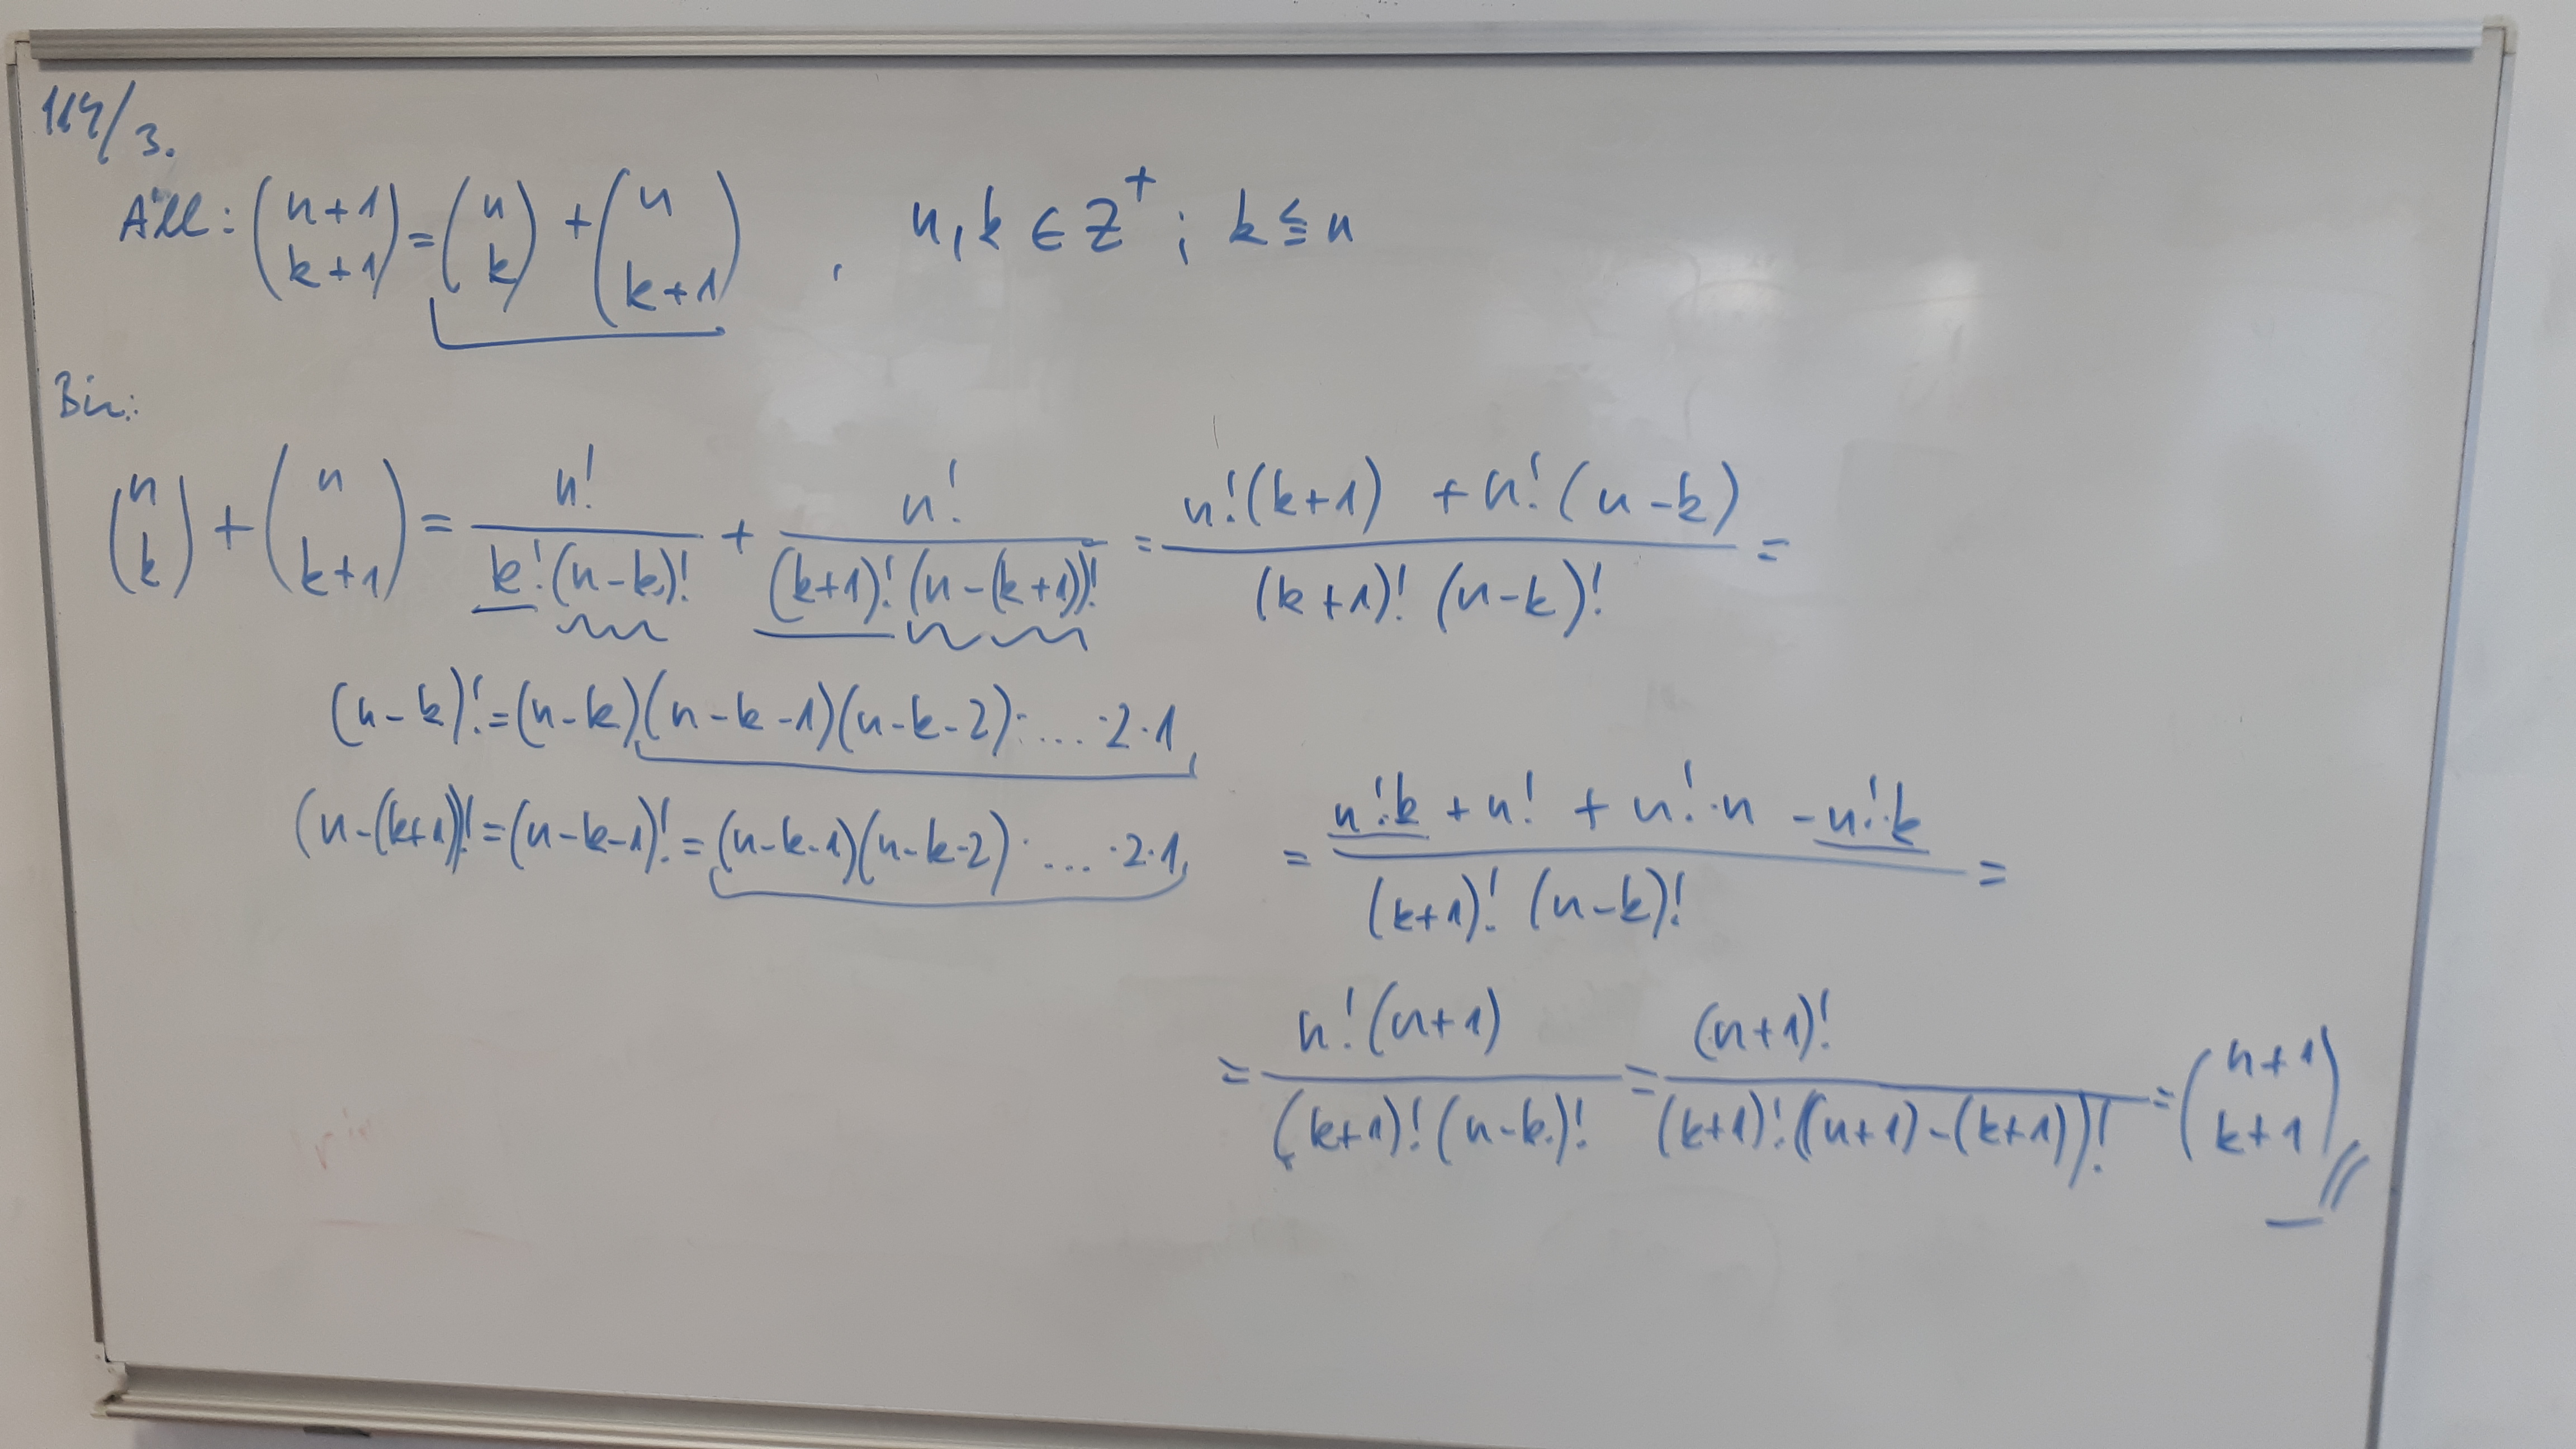 114/3.
Áll: (n+1 k+1) = (n k) + (n k+1), n,k ∈ Z⁺; k ≦ n
Biz.:
(n k) + (n k+1) = n!/(k!(n-k)!) + n!/((k+1)!(n-(k+1))!) = (n!(k+1) + n!(n-k))/((k+1)!(n-k)!) =
(n-k)! = (n-k)(n-k-1)(n-k-2)·....·2·1
(n-(k+1))! = (n-k-1)! = (n-k-1)(n-k-2)·....·2·1
= (n!·k + n! + n!·n - n!·k)/((k+1)!(n-k)!) =
= n!(n+1)/((k+1)!(n-k)!) = (n+1)!/((k+1)!((n+1)-(k+1))!) = (n+1 k+1)